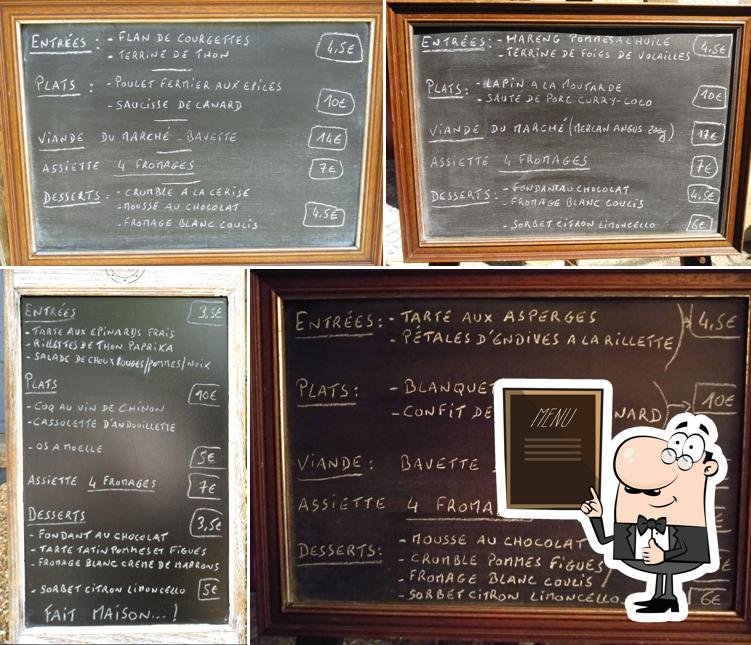 ENTRÉES : - FLAN DE COURGETTES 4,5€
- TERRINE DE THON
PLATS : - POULET FERMIER AUX EPICES
- SAUCISSE DE CANARD 10€
VIANDE DU MARCHÉ - BAVETTE 14€
ASSIETTE 4 FROMAGES 7€
DESSERTS : - CRUMBLE A LA CERISE
- MOUSSE AU CHOCOLAT 4,5€
- FROMAGE BLANC COULIS
ENTRÉES : - HARENG POMMES A L'HUILE 4,5€
- TERRINE DE FOIES DE VOLAILLES
PLATS : - LAPIN A LA MOUTARDE
- SAUTÉ DE PORC CURRY-COCO 10€
VIANDE DU MARCHÉ (MERLAN ANGUS 200g) 17€
ASSIETTE 4 FROMAGES 7€
DESSERTS : - FONDANT AU CHOCOLAT 4,5€
- FROMAGE BLANC COULIS
- SORBET CITRON LIMONCELLO 6€
ENTRÉES 3,5€
- TARTE AUX EPINARDS FRAIS
- RILLETTES DE THON PAPRIKA
- SALADE DE CHOUX ROUGES/POMMES/NOIX
PLATS 10€
- COQ AU VIN DE CHINON
- CASSOLETTE D'ANDOUILLETTE
- OS A MOELLE 5€
ASSIETTE 4 FROMAGES 7€
DESSERTS 3,5€
- FONDANT AU CHOCOLAT
- TARTE TATIN POMMES ET FIGUES
- FROMAGE BLANC CREME DE MARRONS
- SORBET CITRON LIMONCELLO 5€
FAIT MAISON...!
ENTRÉES : - TARTE AUX ASPERGES 4,5€
- PÉTALES D'ENDIVES A LA RILLETTE
PLATS : - BLANQUET 10€
- CONFIT DE NARD
VIANDE : BAVETTE
ASSIETTE 4 FROMA €
DESSERTS : - MOUSSE AU CHOCOLAT
- CRUMBLE POMMES FIGUES €
- FROMAGE BLANC COULIS
- SORBET CITRON LIMONCELLO 6€
MENU